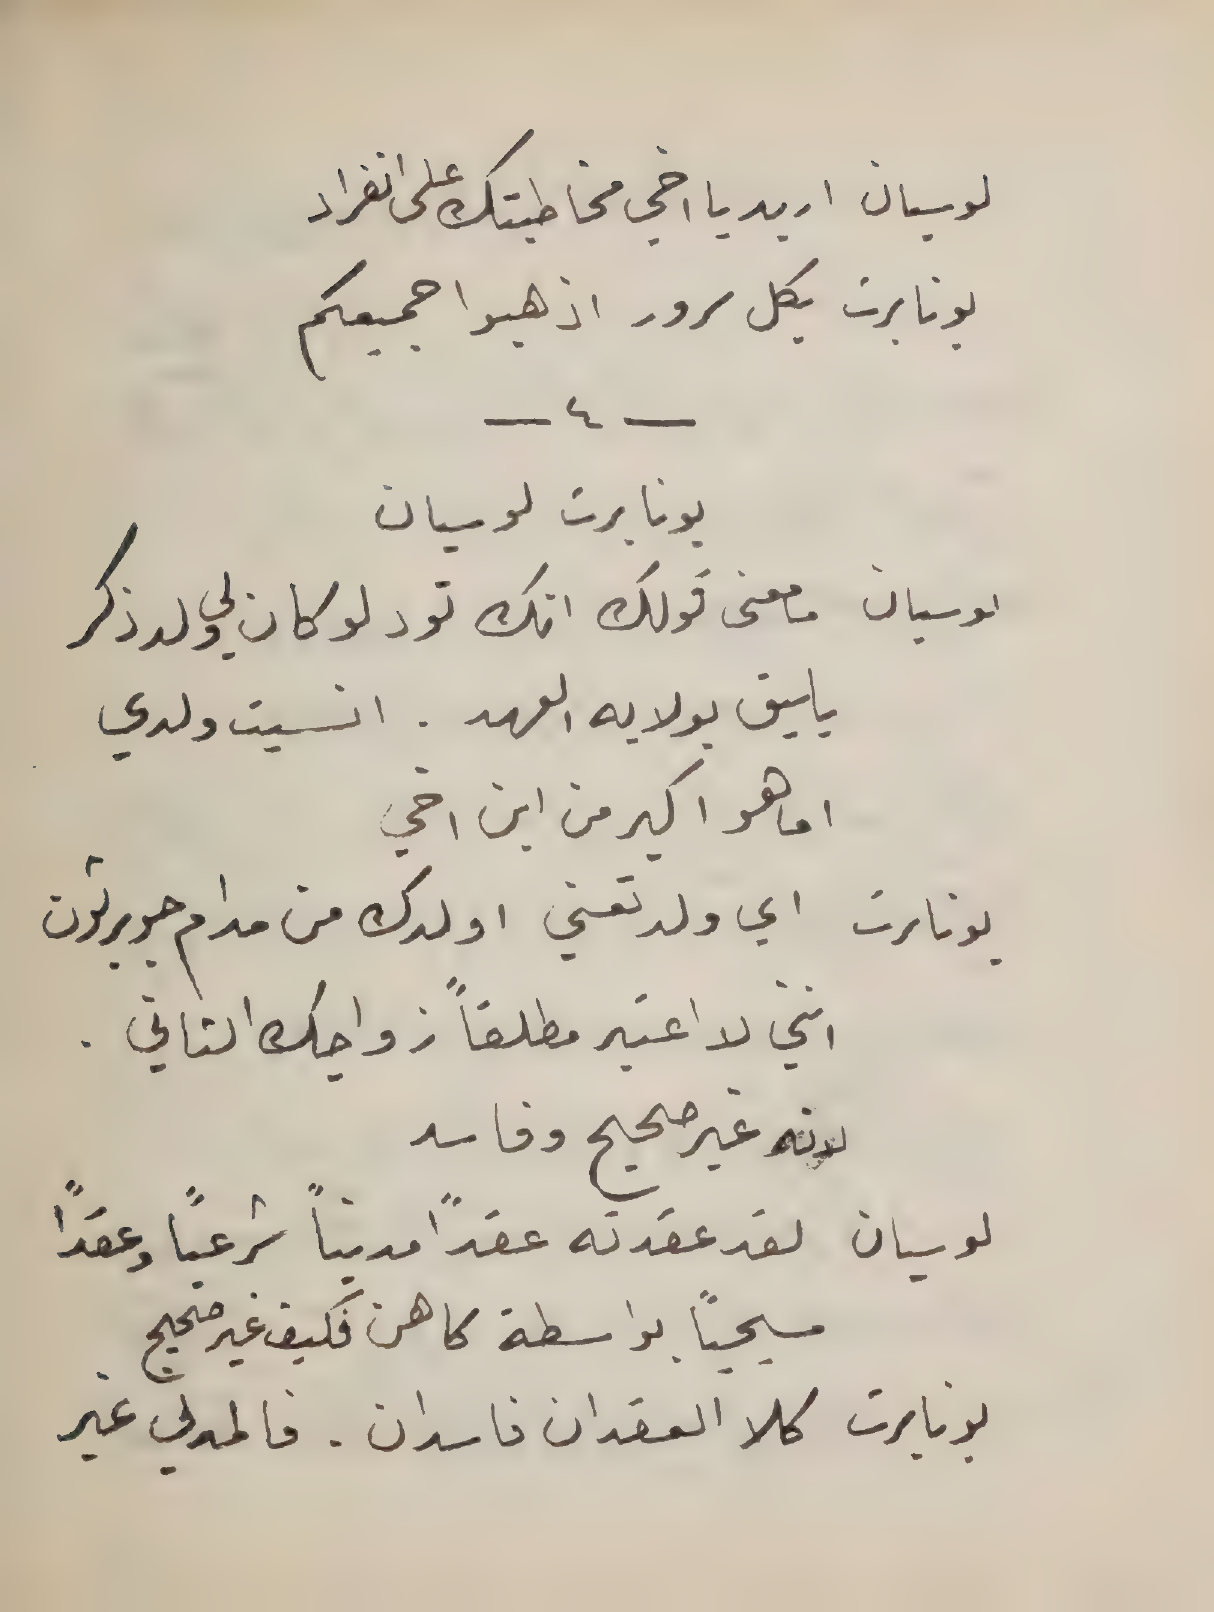 لوسيان اريد يا اخي مخاطبتك على انفراد
بونابرت بكل سرور اذهبوا جميعكم
— ٤ —
بونابرت لوسيان
لوسيان ما معنى قولك انك تود لو كان لي ولد ذكر
يليق بولايه العهد . انسيت ولدي
اما هو اكبر من ابن اخي
بونابرت اي ولد تعني اولدك من مدام جوبرثون
انني لا اعتبر مطلقاً زواجك الثاني .
لانه غير صحيح وفاسد
لوسيان لقد عقدته عقداً مدنياً شرعياً وعقداً
مسيحياً بواسطة كاهن فكيف غير صحيح
بونابرت كلا العقدان فاسدان . فالمدني غير